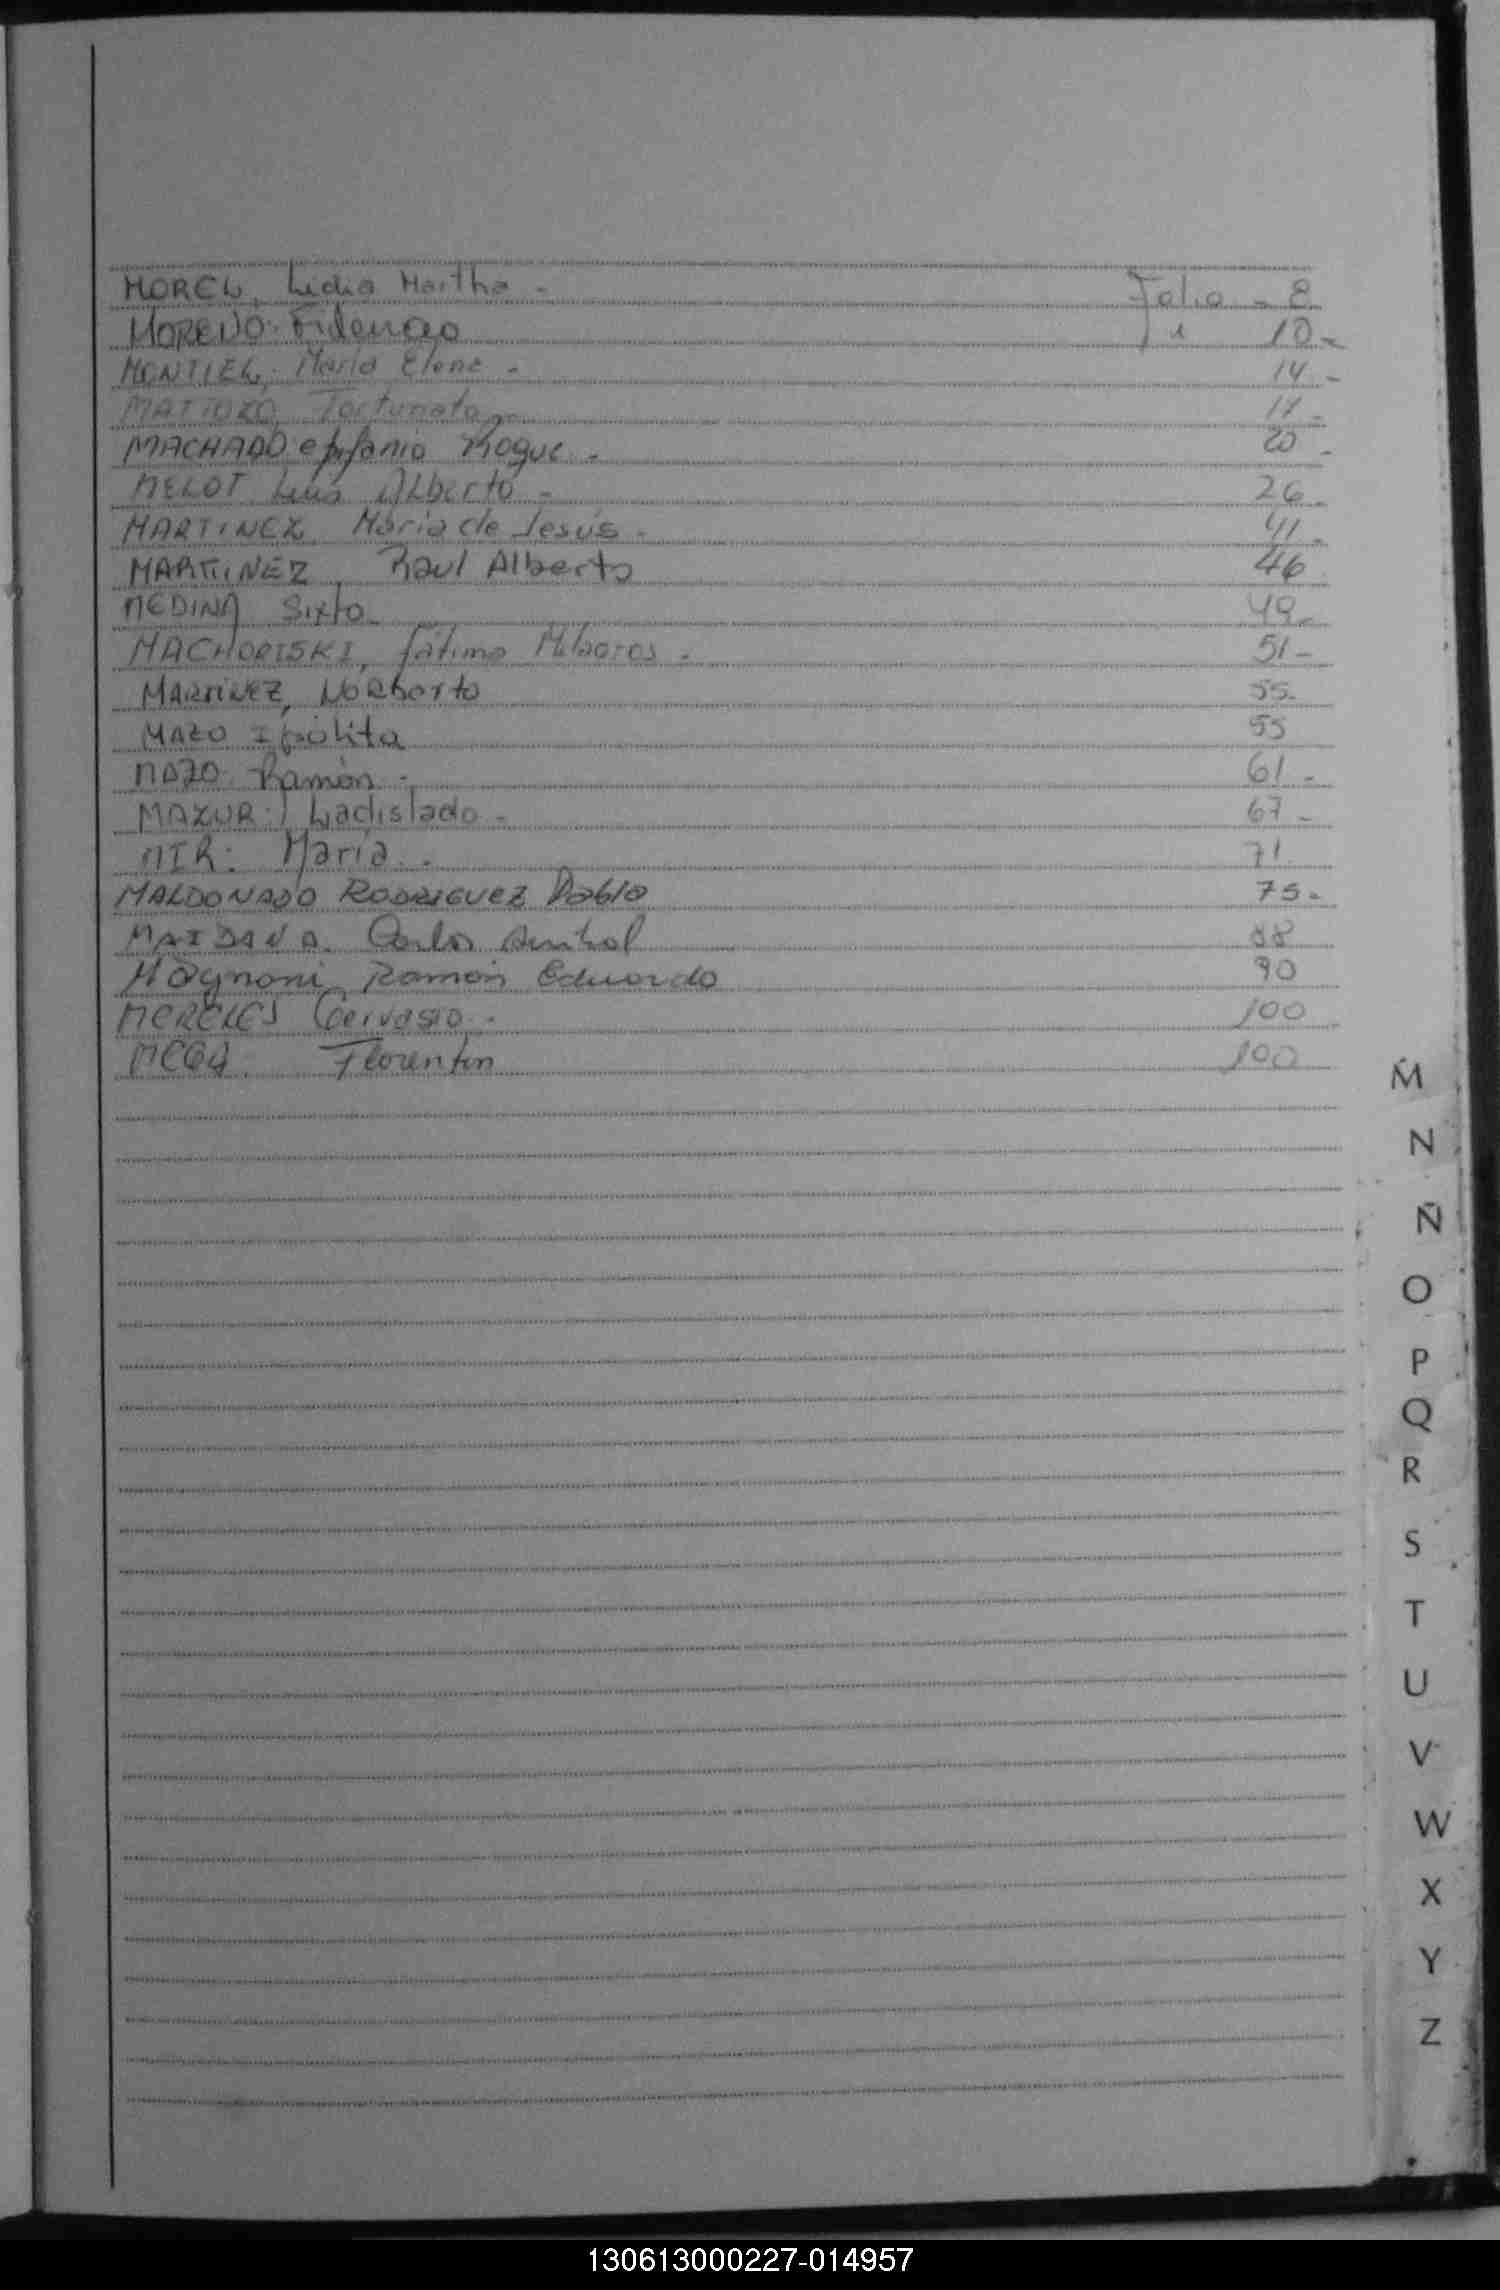 MOREL, Lidia Martha - Folio - 8
MORENO. Fidencio " 10 -
MONTIEL, María Elena - 14 -
MATTOZO Fortunato - 17 -
MACHADO epifanio Roque - 20 -
MELOT Luis Alberto - 26 -
MARTINEZ María de Jesús - 41 -
MARTINEZ, Raul Alberto 46
MEDINA Sixto 49 -
MACHORISKI, fátima Milagros - 51 -
MARTINEZ, Norberto 55 -
MAZO Ipólita 55
MAZO. Ramón - 61 -
MAZUR: Ladislado - 67 -
MIR: María - 71
MALDONADO RODRIGUEZ Pablo 75 -
MAIDANA. Carlos Anibal 88
Magnoni Ramón Eduardo 90
MERELES Gervasio - 100
MEZA Florentin 100
M
N
Ñ
O
P
Q
R
S
T
U
V
W
X
Y
Z
130613000227-014957